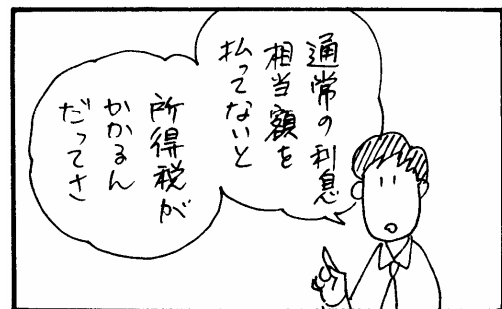 通常の利息
相当額を
払ってないと
所得税が
かかるん
だってさ